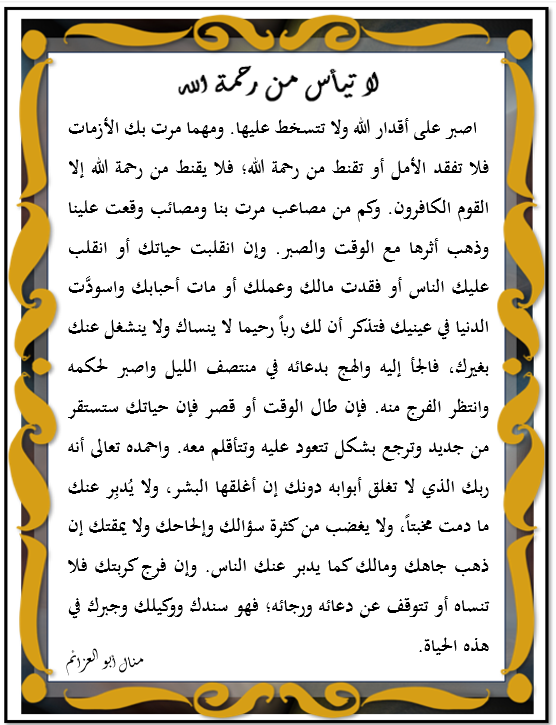 لا تيأس من رحمة الله
اصبر على أقدار الله ولا تتسخط عليها. ومهما مرت بك الأزمات
فلا تفقد الأمل أو تقنط من رحمة الله؛ فلا يقنط من رحمة الله إلا
القوم الكافرون. وكم من مصاعب مرت بنا ومصائب وقعت علينا
وذهب أثرها مع الوقت والصبر. وإن انقلبت حياتك أو انقلب
عليك الناس أو فقدت مالك وعملك أو مات أحبابك واسودَّت
الدنيا في عينيك فتذكر أن لك رباً رحيما لا ينساك ولا ينشغل عنك
بغيرك، فالجأ إليه والهج بدعائه في منتصف الليل واصبر لحكمه
وانتظر الفرج منه. فإن طال الوقت أو قصر فإن حياتك ستستقر
من جديد وترجع بشكل تتعود عليه وتتأقلم معه. واحمده تعالى أنه
ربك الذي لا تغلق أبوابه دونك إن أغلقها البشر، ولا يُدبِر عنك
ما دمت مخبتاً، ولا يغضب من كثرة سؤالك وإلحاحك ولا يمقتك إن
ذهب جاهك ومالك كما يدبر عنك الناس. وإن فرج كربتك فلا
تنساه أو تتوقف عن دعائه ورجائه؛ فهو سندك ووكيلك وجبرك في
هذه الحياة.
منال أبو العزائم